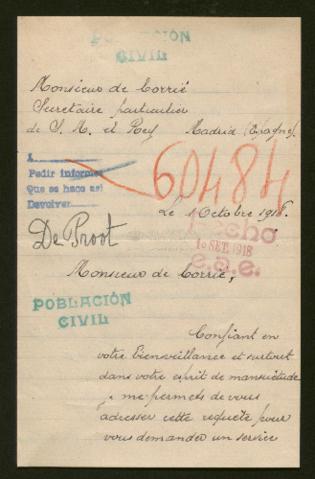 POBLACIÓN
CIVIL
Monsieur de Torrié
Secretaire particulier
de S. M. el Rey Madrid (Espagne).
A
Pedir informes
Que se haco así
Devolver
60484
Le 1 Octobre 1918.
Hecho
10 SET. 1918
e.a.e.
De Proot
Monsieur de Torrié,
POBLACIÓN
CIVIL
Confiant en
votre bienveillance et surtout
dans votre esprit de mansuétude
me permets de vous
adresser cette requête pour
vous demander un service